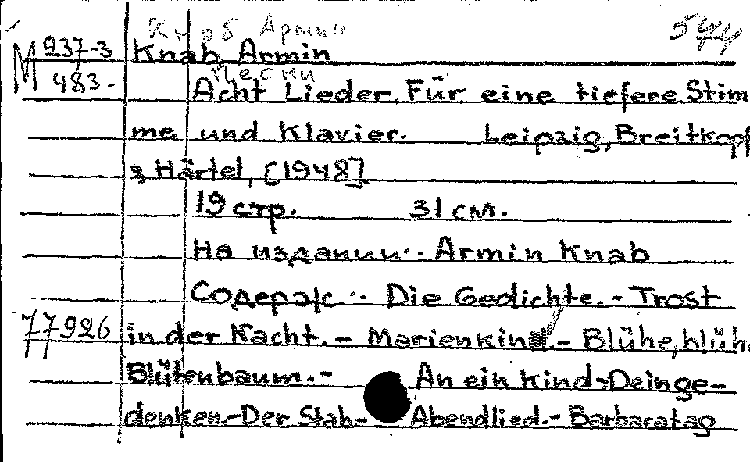 Кнаб Армин
544
М 937-3
483.
Knab, Armin
песни
Acht Lieder. Für eine tiefere Stim
me und Klavier. Leipzig, Breitkopf
& Härtel, [1948]
19 стр. 31 см.
На издании: Armin Knab
Содерж.: Die Gedichte. - Trost
77926
in der Nacht. - Marienkind. - Blühe, blühe
Blütenbaum. - An ein Kind - Deinge-
denken. - Der Stab - Abendlied. - Barbaratag